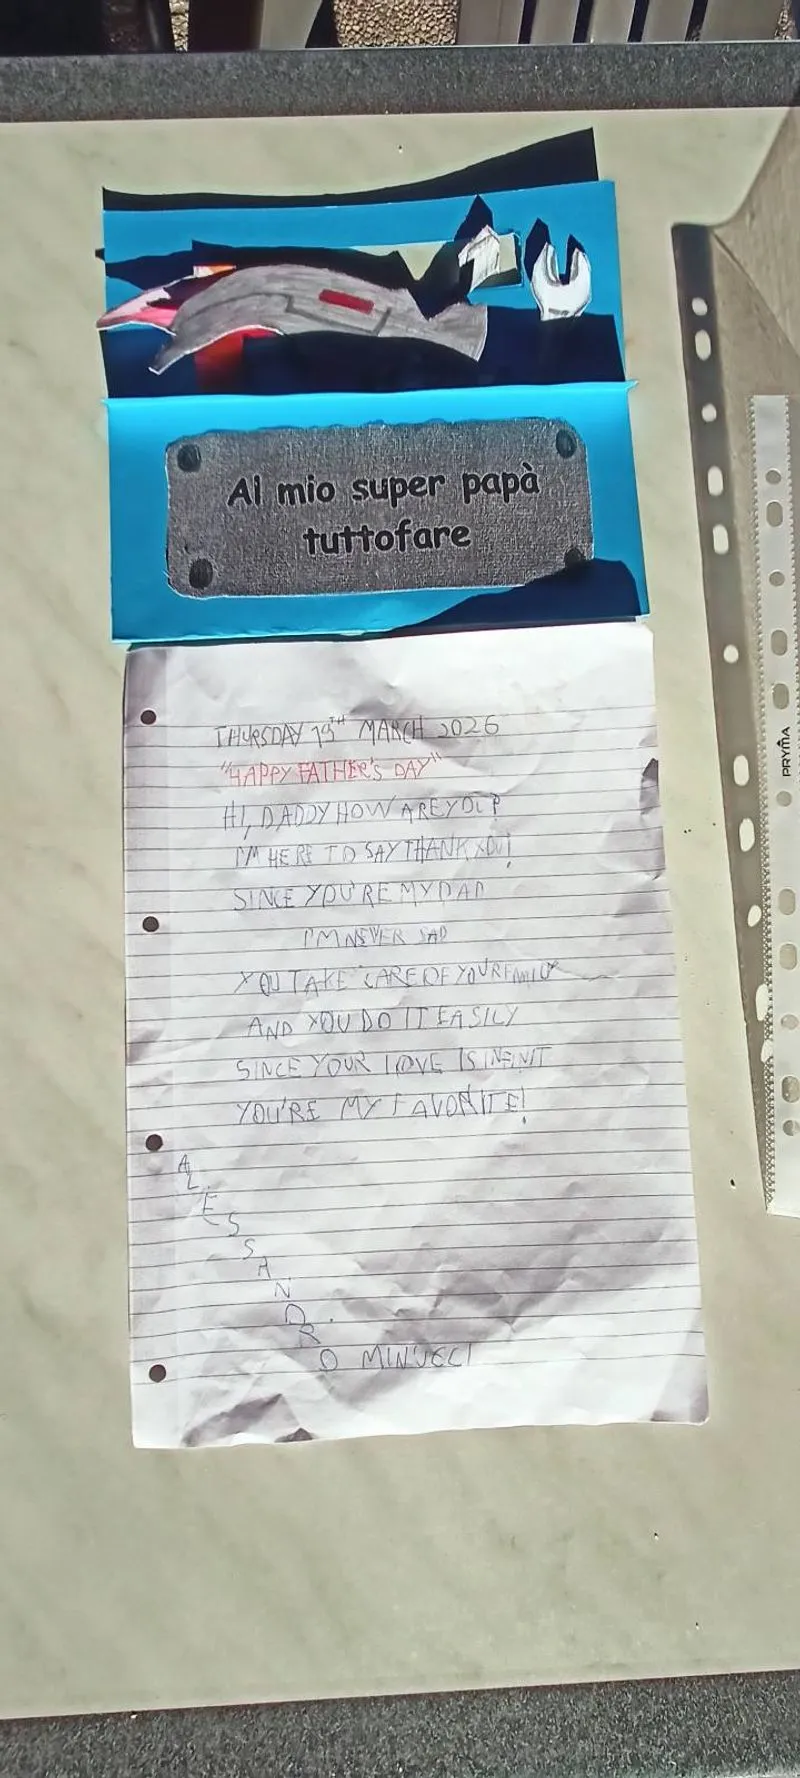 Al mio super papà
tuttofare
THURSDAY 19TH MARCH 2026
"HAPPY FATHER'S DAY"
HI, DADDY HOW ARE YOU?
I'M HERE TO SAY THANK YOU!
SINCE YOU'RE MY DAD
I'M NEVER SAD
YOU TAKE CARE OF YOUR FAMILY
AND YOU DO IT EASILY
SINCE YOUR LOVE IS INFINIT
YOU'RE MY FAVORITE!
ALESSANDRO MINUCCI
PRYMA